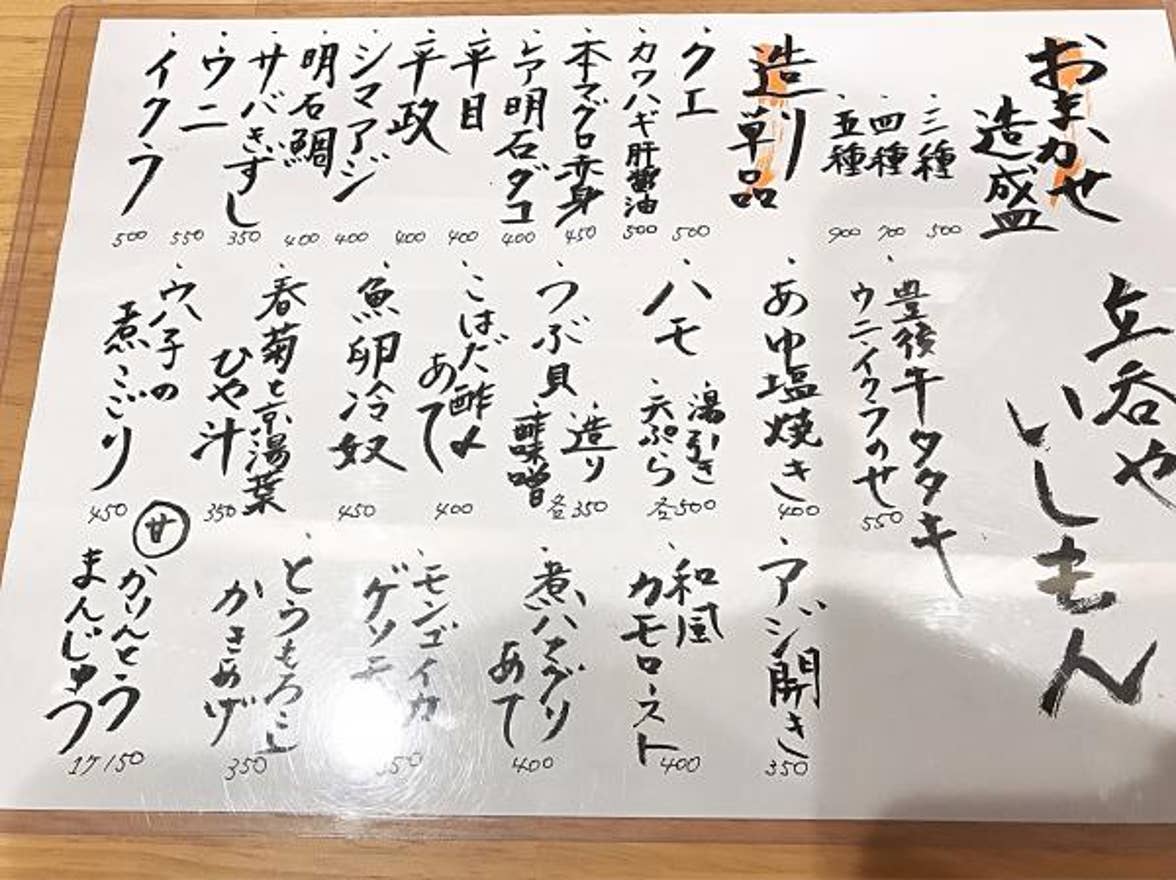 立呑や
いしもん
おまかせ
造盛
・三種 500
・四種 700
・五種 900
造り
単品
・クエ 500
・カワハギ肝醤油 500
・本マグロ赤身 450
・レア明石ダコ 400
・平目 400
・平政 400
・シマアジ 400
・明石鯛 400
・サバきずし 350
・ウニ 550
・イクラ 500
・豊後牛タタキ
ウニ・イクラのせ 550
・あゆ塩焼き 400
・ハモ
・湯引き
・天ぷら
各500
・つぶ貝
・造り
・酢味噌
各350
・こはだ酢〆
あて 400
・魚卵冷奴 450
・春菊と京湯葉
ひや汁 350
・ウハ子の
煮こごり 450
・アジ開き 350
・和風
カモロースト 400
・煮ハマグリ
あて 400
・モンゴイカ
ゲソ
・とうもろこし
かきあげ 350
甘
かりんとう
まんじゅう
1ケ150